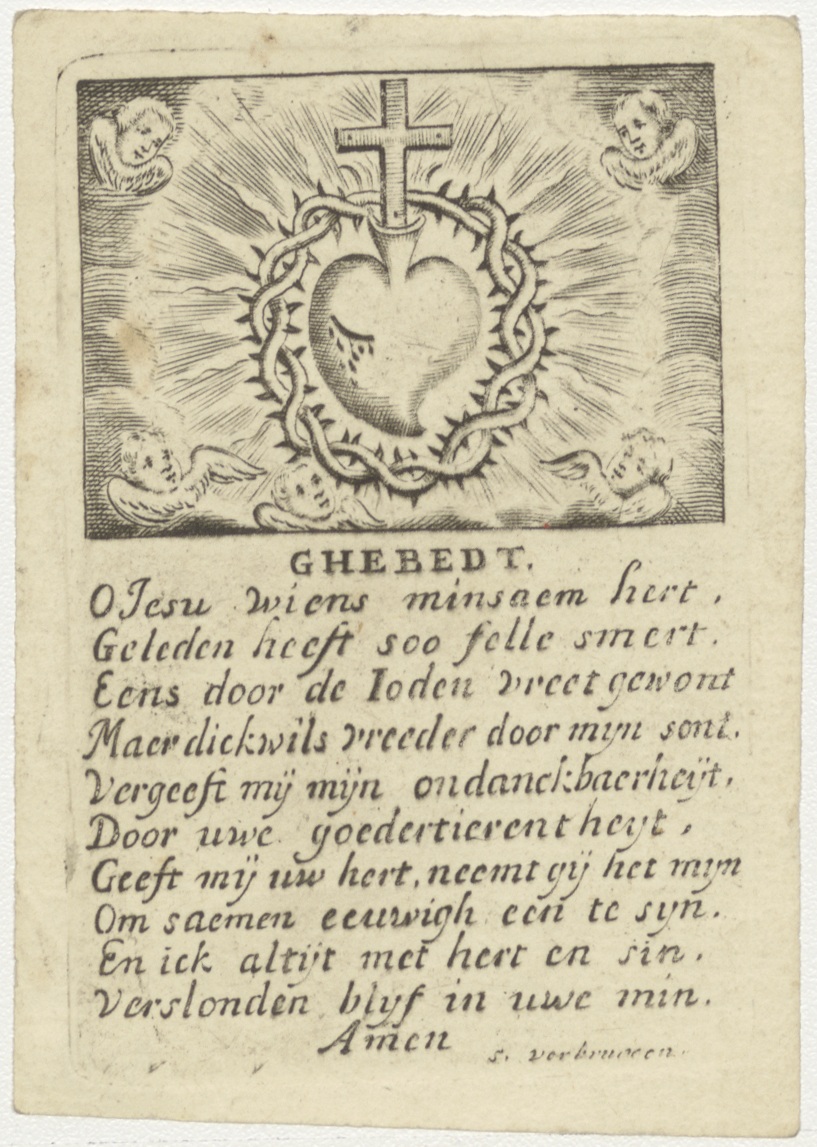 GHEBEDT.
O Jesu wiens minsaem hert,
Geleden heeft soo felle smert.
Eens door de Ioden vreet gewont
Maer dickwils vreeder door mijn sont.
Vergeeft mij mijn ondanckbaerheijt,
Door uwe goedertierentheyt,
Geeft mij uw hert, neemt gij het mijn
Om saemen eeuwigh een te syn.
En ick altijt met hert en sin.
Verslonden blyf in uwe min.
Amen
s. verbruggen.